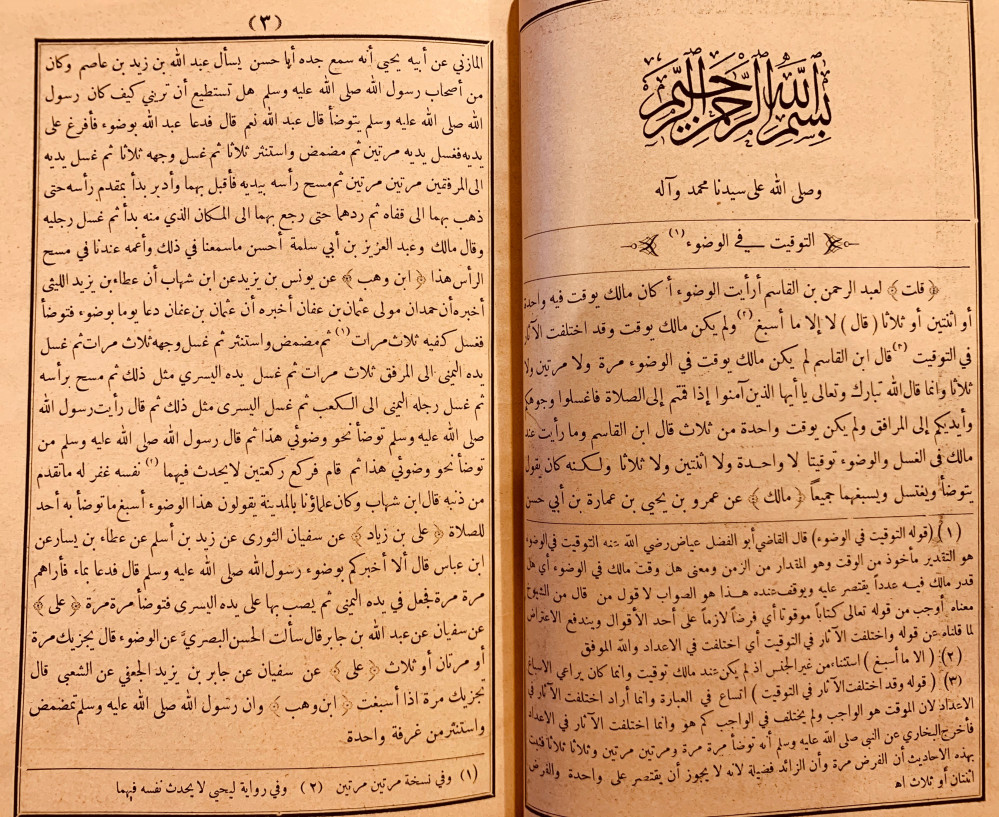 بسم الله الرحمن الرحيم
وصلى الله على سيدنا محمد وآله
التوقيت في الوضوء (١)
﴿ قلت ﴾ لعبد الرحمن بن القاسم أرأيت الوضوء أكان مالك يوقت فيه واحدة
أو اثنتين أو ثلاثا (قال) لا إلا ما أسبغ (٢) ولم يكن مالك يوقت وقد اختلفت الآثار
في التوقيت (٣) قال ابن القاسم لم يكن مالك يوقت في الوضوء مرة ولا مرتين ولا
ثلاثا وانما قال الله تبارك وتعالى ياأيها الذين آمنوا إذا قمتم إلى الصلاة فاغسلوا وجوهكم
وأيديكم إلى المرافق ولم يكن يوقت واحدة من ثلاث قال ابن القاسم وما رأيت عند
مالك في الغسل والوضوء توقيتا لا واحدة ولا اثنتين ولا ثلاثا ولكنه كان يقول
يتوضأ ويغتسل ويسبغهما جميعاً ﴿ مالك ﴾ عن عمرو بن يحيى بن عمارة بن أبي حسن
(١) (قوله التوقيت في الوضوء) قال القاضي أبو الفضل عياض رضي الله عنه التوقيت في الوضوء
هو التقدير مأخوذ من الوقت وهو المقدار من الزمن ومعنى هل وقت مالك في الوضوء أي هل
قدر مالك فيه عدداً يقتصر عليه ويوقف عنده هذا هو الصواب لا قول من قال من الشيوخ
معناه أوجب من قوله تعالى كتاباً موقوتاً أي فرضاً لازماً على أحد الأقوال ويندفع الاعتراض
لما قلناه عن قوله واختلفت الآثار في التوقيت أي اختلفت في الاعداد والله الموفق
(٢) (الا ما أسبغ) استثناء من غير الجنس اذ لم يكن عند مالك توقيت وانما كان يراعي الاسباغ
(٣) (قوله وقد اختلفت الآثار في التوقيت) اتساع في العبارة وانما أراد اختلفت الآثار في
الاعداد لان الموقت هو الواجب ولم يختلف في الواجب كم هو وانما اختلفت الآثار في الاعداد
فأخرج البخاري عن النبي صلى الله عليه وسلم أنه توضأ مرة مرة ومرتين مرتين وثلاثا ثلاثا فثبت
بهذه الأحاديث أن الفرض مرة وأن الزائد فضيلة لانه لا يجوز أن يقتصر على واحدة والفرض
اثنتان أو ثلاث اه
(٣)
المازني عن أبيه يحيى أنه سمع جده أبا حسن يسأل عبد الله بن زيد بن عاصم وكان
من أصحاب رسول الله صلى الله عليه وسلم هل تستطيع أن تريني كيف كان رسول
الله صلى الله عليه وسلم يتوضأ قال عبد الله نعم قال فدعا عبد الله بوضوء فأفرغ على
يديه فغسل يديه مرتين ثم مضمض واستنثر ثلاثا ثم غسل وجهه ثلاثا ثم غسل يديه
الى المرفقين مرتين مرتين ثم مسح رأسه بيديه فأقبل بهما وأدبر بدأ بمقدم رأسه حتى
ذهب بهما الى قفاه ثم ردهما حتى رجع بهما الى المكان الذي منه بدأ ثم غسل رجليه
وقال مالك وعبد العزيز بن أبي سلمة أحسن ماسمعنا في ذلك وأعمه عندنا في مسح
الرأس هذا ﴿ ابن وهب ﴾ عن يونس بن يزيد عن ابن شهاب أن عطاء بن يزيد الليثي
أخبره أن حمدان مولى عثمان بن عفان أخبره أن عثمان بن عفان دعا يوما بوضوء فتوضأ
فغسل كفيه ثلاث مرات (١) ثم مضمض واستنثر ثم غسل وجهه ثلاث مرات ثم غسل
يده اليمنى الى المرفق ثلاث مرات ثم غسل يده اليسرى مثل ذلك ثم مسح برأسه
ثم غسل رجله اليمنى الى الكعب ثم غسل اليسرى مثل ذلك ثم قال رأيت رسول الله
صلى الله عليه وسلم توضأ نحو وضوئي هذا ثم قال رسول الله صلى الله عليه وسلم من
توضأ نحو وضوئي هذا ثم قام فركع ركعتين لا يحدث فيهما (٢) نفسه غفر له ماتقدم
من ذنبه قال ابن شهاب وكان علماؤنا بالمدينة يقولون هذا الوضوء أسبغ ماتوضأ به أحد
للصلاة ﴿ على بن زياد ﴾ عن سفيان الثورى عن زيد بن أسلم عن عطاء بن يسار عن
ابن عباس قال ألا أخبركم بوضوء رسول الله صلى الله عليه وسلم قال فدعا بماء فأراهم
مرة مرة فجعل في يده اليمنى ثم يصب بها على يده اليسرى فتوضأ مرة مرة ﴿ على ﴾
عن سفيان عن عبد الله بن جابر قال سألت الحسن البصريَّ عن الوضوء قال يجزيك مرة
أو مرتان أو ثلاث ﴿ على ﴾ عن سفيان عن جابر بن يزيد الجعفي عن الشعبي قال
تجزيك مرة اذا أسبغت ﴿ ابن وهب ﴾ وان رسول الله صلى الله عليه وسلم تمضمض
واستنثر من غرفة واحدة
(١) وفي نسخة مرتين مرتين (٢) وفي رواية ليحيى لا يحدث نفسه فيهما